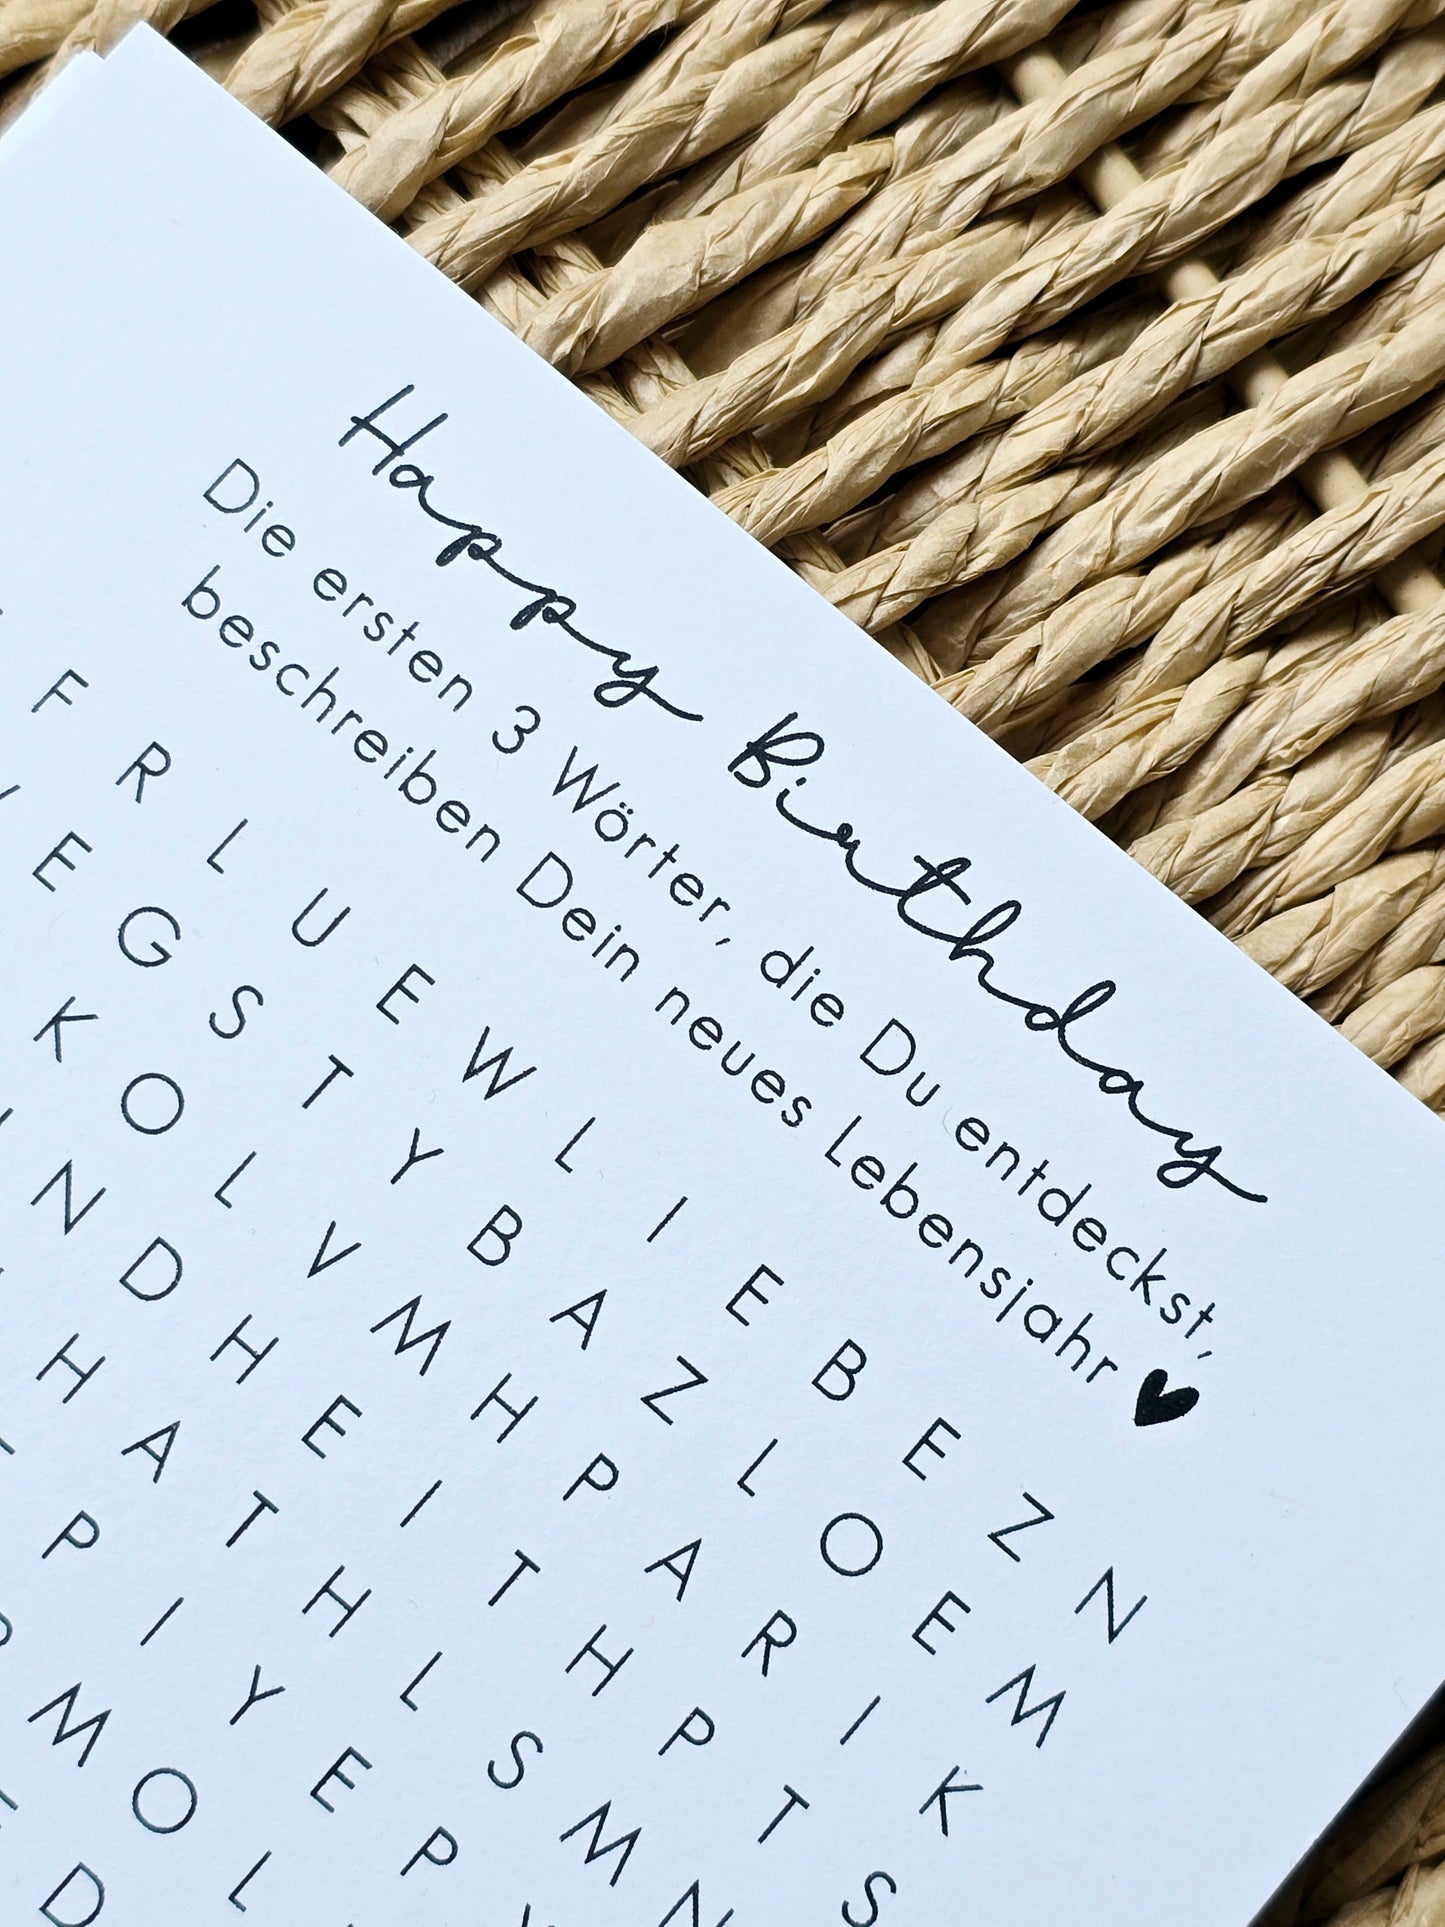 Happy Birthday
Die ersten 3 Wörter, die Du entdeckst,
beschreiben Dein neues Lebensjahr ♥
F R L U E W L I E B E Z N
E G S T Y B A Z L O E M
K O L V M H P A R I K
N D H E I T H P T S
H A T H L S M N
P I Y E P
M O L
D